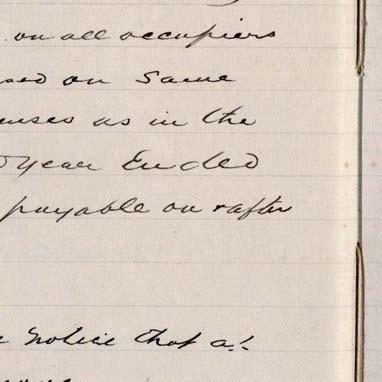 on all occupiers
sed on Same
enses as in the
year Ended
payable on & after
notice that at